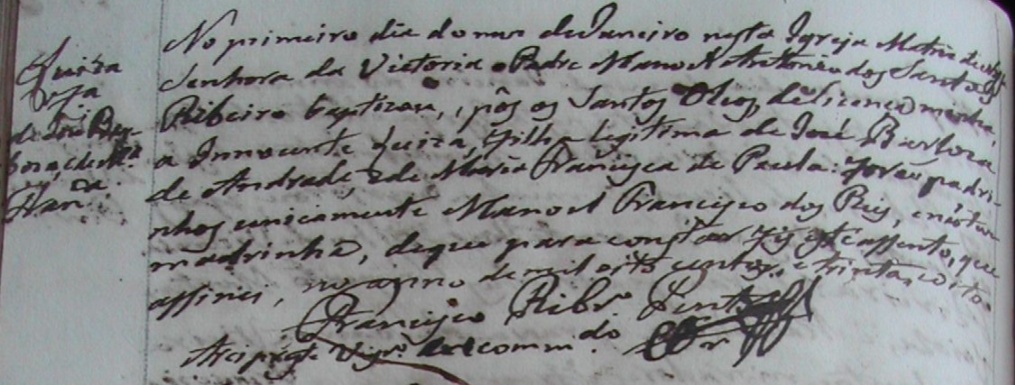 Luiza
de José Bar
boza, e de Ma
Fran.ca
No primeiro dia do mes de Janeiro nesta Igreja Matriz de
Senhora da Victoria o Padre Manoel Antonio dos Santos
Ribeiro baptizou, e pôs os Santos Oleos, de licença minha
a Innocente Luiza, filha legitima de José Barboza
de Andrade, e de Maria Francisca de Paula: forão padri-
nhos unicamente Manoel Francisco dos Reis, e não teve
madrinha, de que para constar fiz este assento, que
assinei, no anno de mil oito centos, e trinta, e oito.
Francisco Ribr.o
Arcipreste Vigr.o comm.do